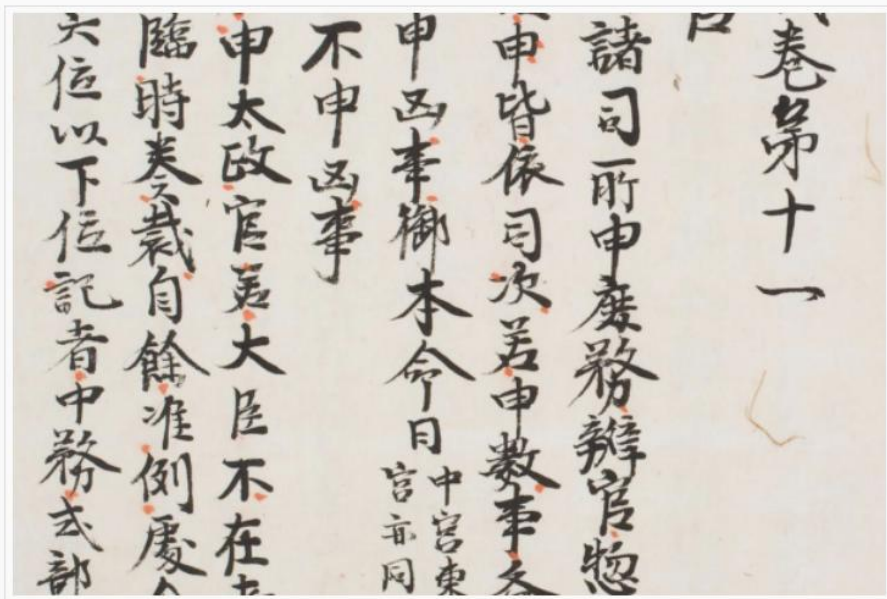 卷第十一
官
諸司所申庶務辨官惣
申皆依司次若申數事
申凶事御本命日
中宮東
宮亦同
不申凶事
申太政官若大臣不在
臨時奏裁自餘准例處
六位以下位記者中務式部